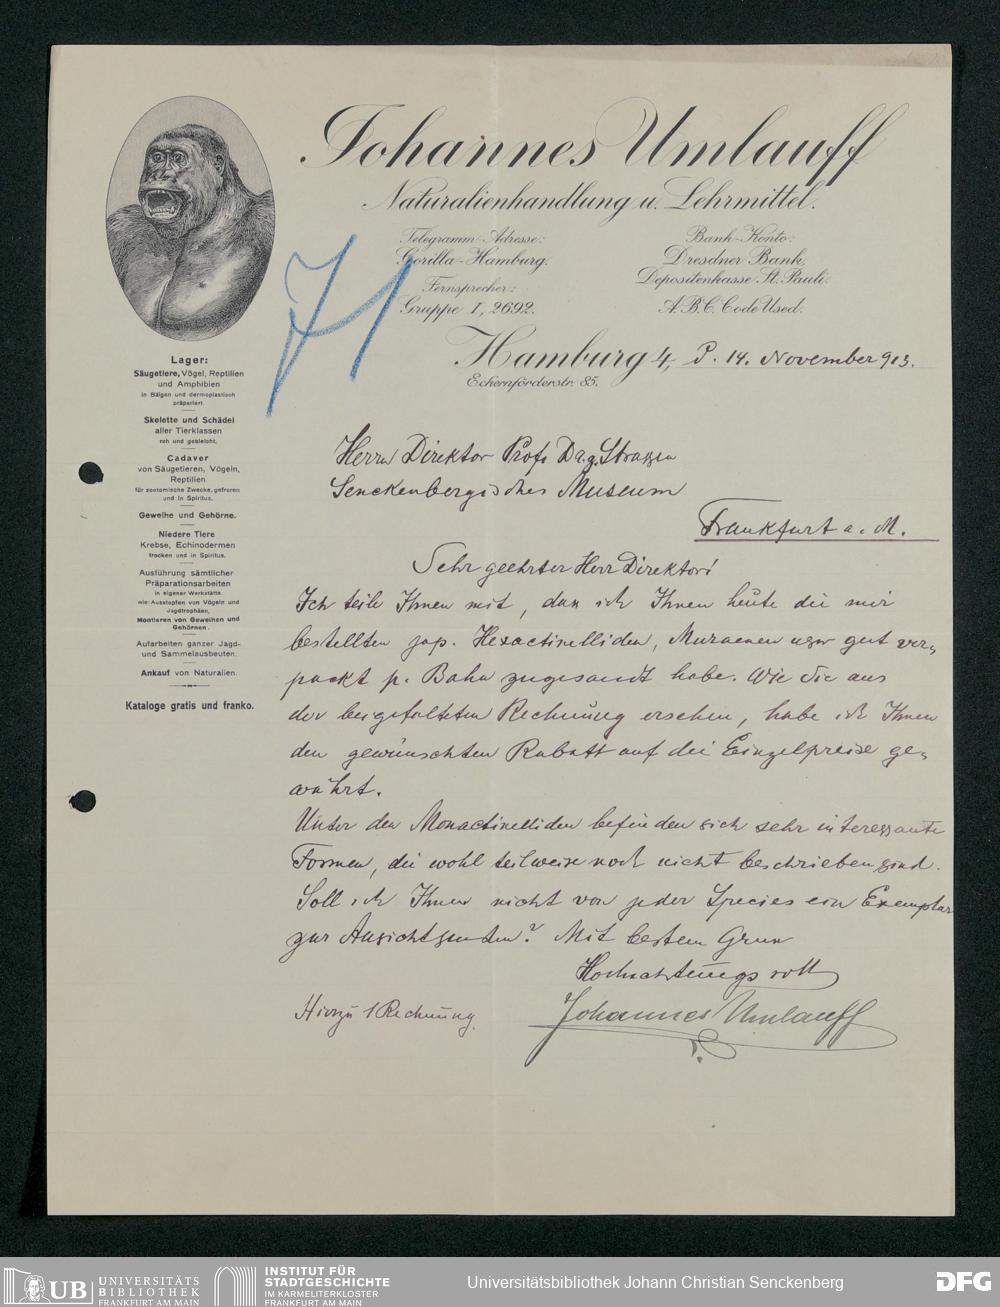 Johannes Umlauff
Naturalienhandlung u. Lehrmittel.
Telegramm-Adresse:
Gorilla-Hamburg.
Fernsprecher:
Gruppe I, 2692.
Bank-Konto:
Dresdner Bank,
Depositenkasse St. Pauli.
A.B.C. Code Used.
Hamburg 4, d. 14. November 913.
Eckernförderstr. 85.
Lager:
Säugetiere, Vögel, Reptilien
und Amphibien
in Bälgen und dermoplastisch
präpariert.
Skelette und Schädel
aller Tierklassen
roh und gebleicht.
Cadaver
von Säugetieren, Vögeln,
Reptilien
für zootomische Zwecke, gefroren
und in Spiritus.
Geweihe und Gehörne.
Niedere Tiere
Krebse, Echinodermen
trocken und in Spiritus.
Ausführung sämtlicher
Präparationsarbeiten
in eigener Werkstätte
wie: Ausstopfen von Vögeln und
Jagdtrophäen,
Montieren von Geweihen und
Gehörnen.
Aufarbeiten ganzer Jagd-
und Sammelausbeuten.
Ankauf von Naturalien.
Kataloge gratis und franko.
Herrn Direktor Profs Dr. z. Strassen
Senckenbergisches Museum
Frankfurt a. M.
Sehr geehrter Herr Direktor!
Ich teile Ihnen mit, dass ich Ihnen heute die mir
bestellten jap. Hexactinelliden, Muraenen usw gut ver-
packt p. Bahn zugesandt habe. Wie Sie aus
der beigefalteten Rechnung ersehen, habe ich Ihnen
den gewünschten Rabatt auf die Einzelpreise ge-
währt.
Unter den Monactinelliden befinden sich sehr interessante
Formen, die wohl teilweise noch nicht beschrieben sind.
Soll ich Ihnen nicht von jeder Species ein Exemplar
zur Ansicht senden? Mit bestem Gruss
Hochachtungsvoll
Johannes Umlauff
Hierzu 1 Rechnung.
UB UNIVERSITÄTS
BIBLIOTHEK
FRANKFURT AM MAIN
INSTITUT FÜR
STADTGESCHICHTE
IM KARMELITERKLOSTER
FRANKFURT AM MAIN
Universitätsbibliothek Johann Christian Senckenberg
DFG